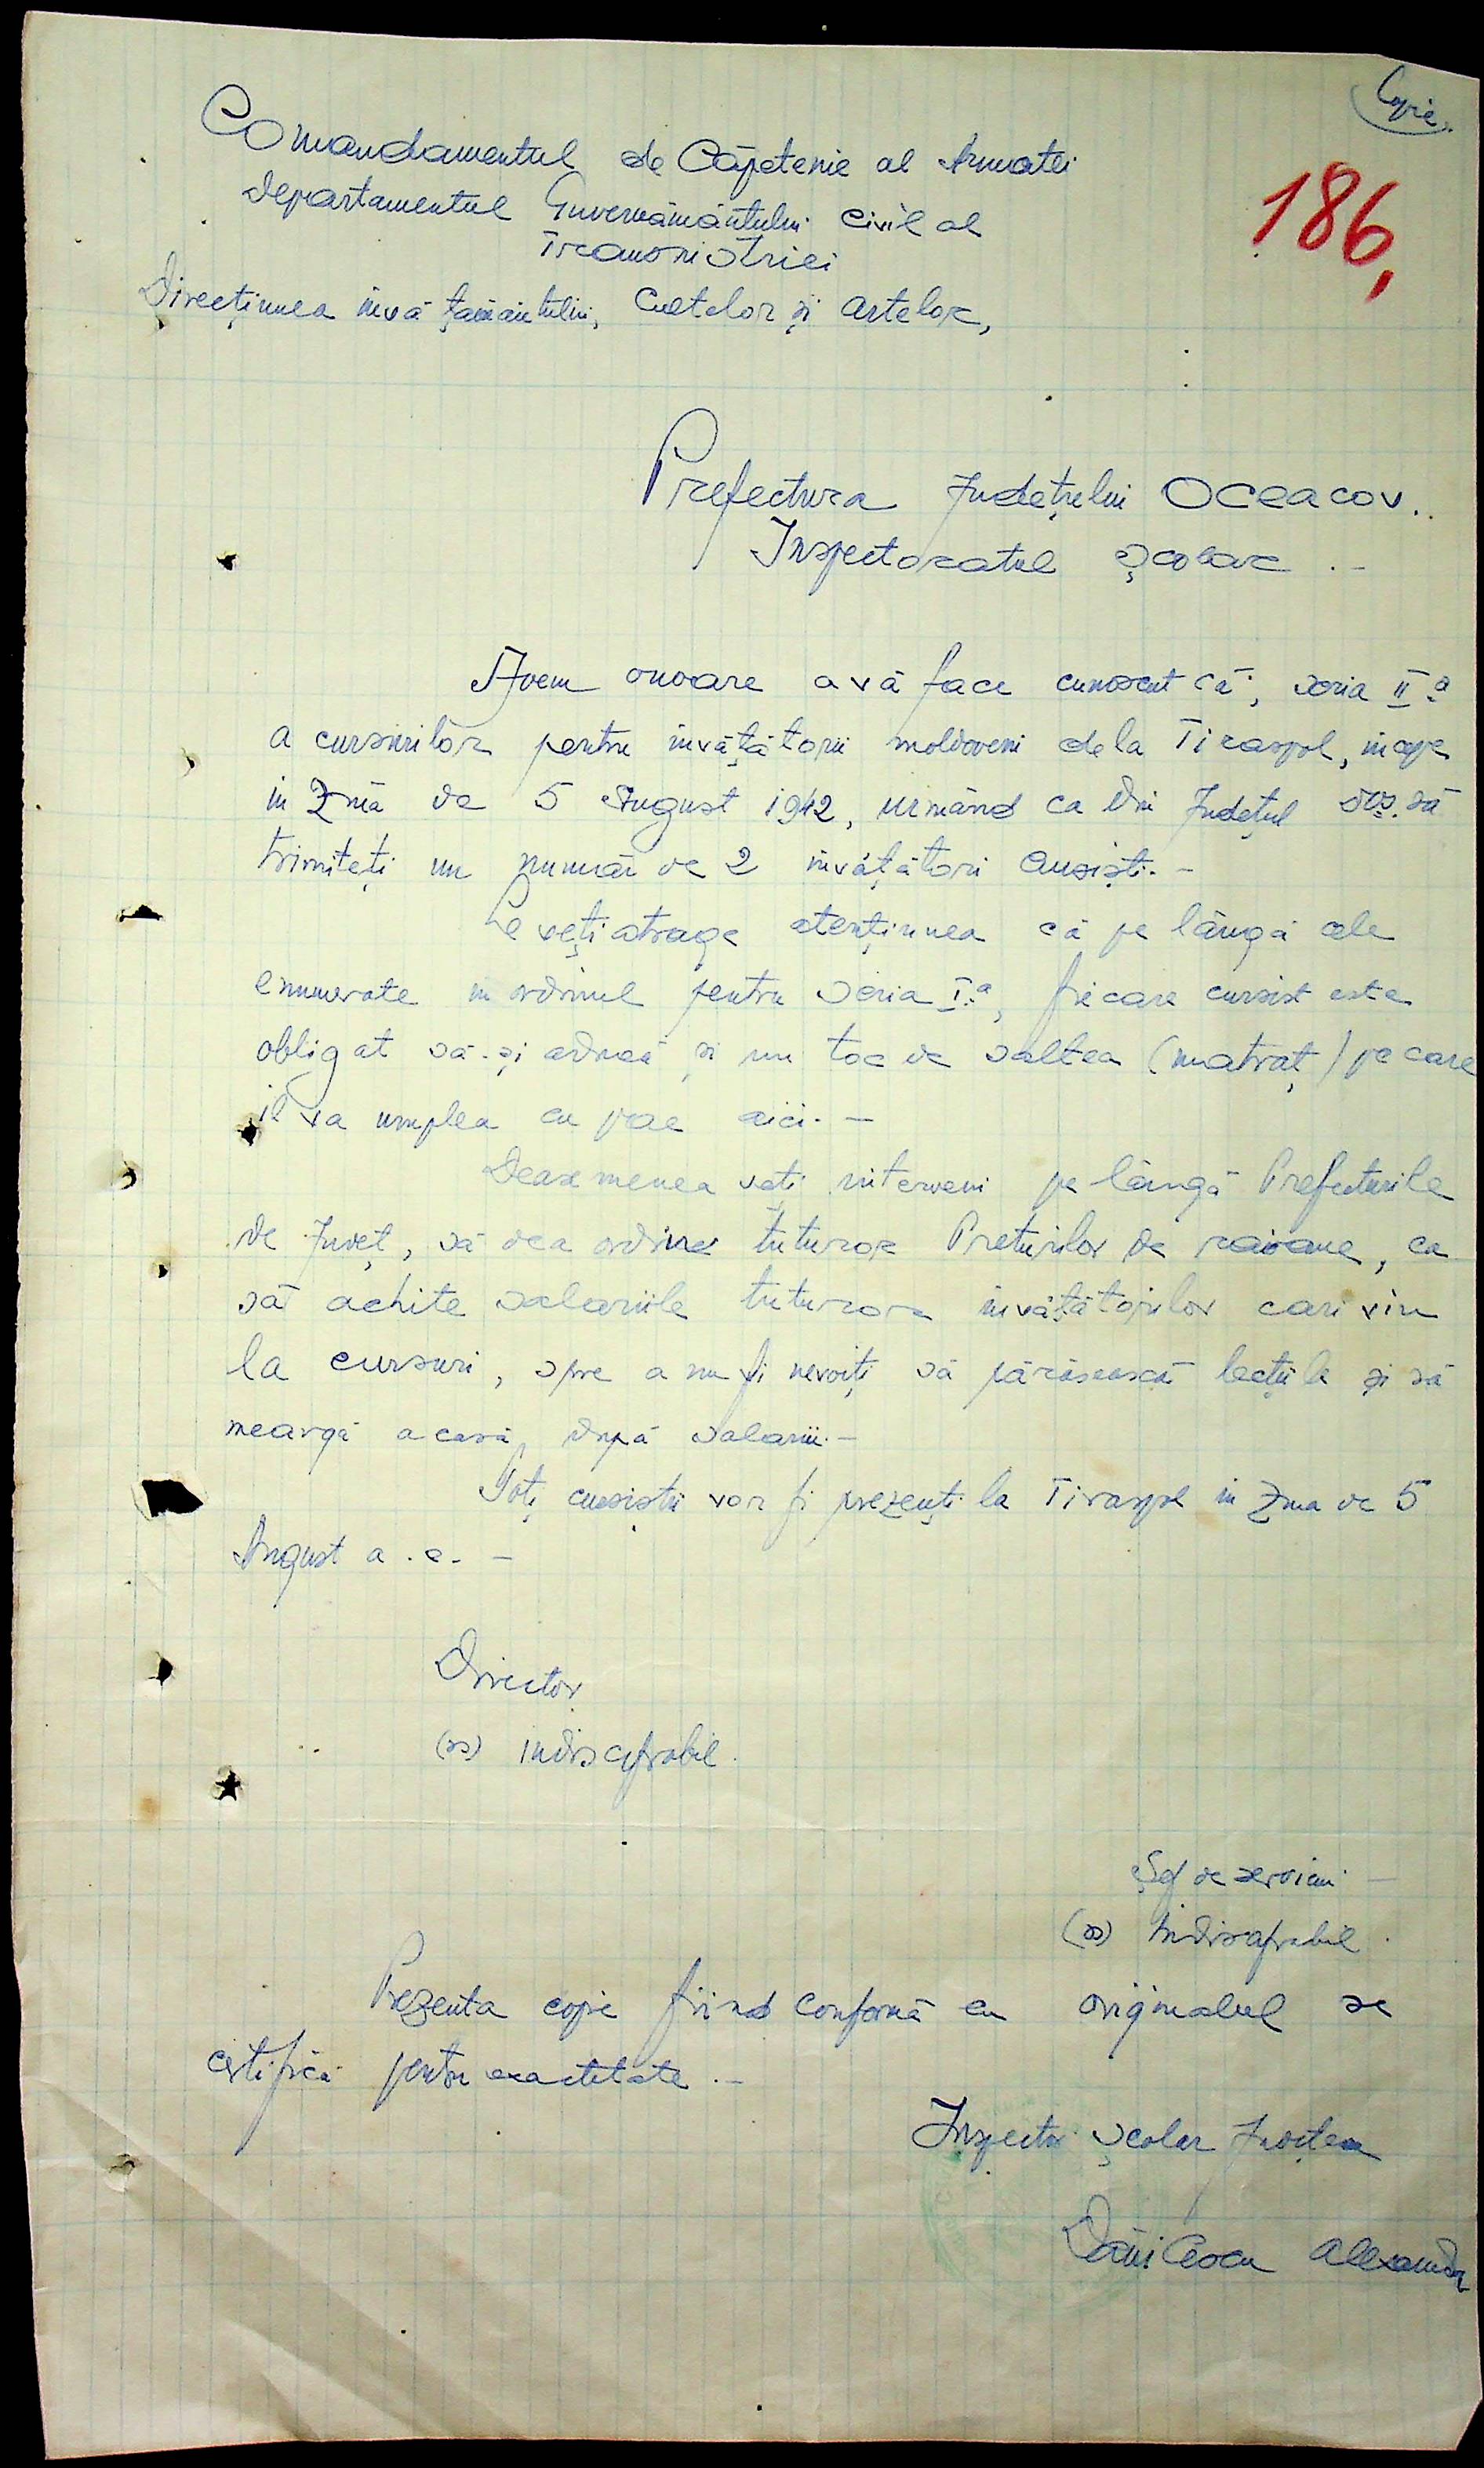 Copie.
186,
Comandamentul de Căpetenie al Armatei
Departamentul Guvernământului Civil al
Transnistriei
Direcţiunea învăţământului, Cultelor şi Artelor,
Prefectura Judeţului Oceacov.
Inspectoratul Şcolar .-
Avem onoare a vă face cunoscut că, seria II-a
a cursurilor pentru învăţătorii moldoveni dela Tiraspol, începe
in Zma de 5 August 1942, urmând ca din Judeţul Dvs. să
trimiteţi un număr de 2 învăţători cursişti.-
Le veţi atrage atenţiunea că pe lângă cele
enumerate in ordinul pentru seria I-a, fiecare cursist este
obligat să-şi aducă şi un toc de saltea (matraţ) pe care
il va umplea cu pae aici.-
Deasemenea veţi interveni pe lângă Prefecturile
de Judeţ, să dea ordine tuturor Preturilor de raioane, ca
să achite salariile tuturora învăţătorilor cari vin
la cursuri, spre a nu fi nevoiţi să părăsească lecţiile şi să
meargă acasă după salarii.-
Toţi cursiştii vor fi prezenţi la Tiraspol in Zma de 5
August a.c. -
Director
(ss) indiscifrabil.
Şef de serviciu -
(ss) Indiscifrabil.
Prezenta copie fiind conformă cu originalul se
certifică pentru exactitate .-
Inspector Şcolar Judeţean
Alexandru